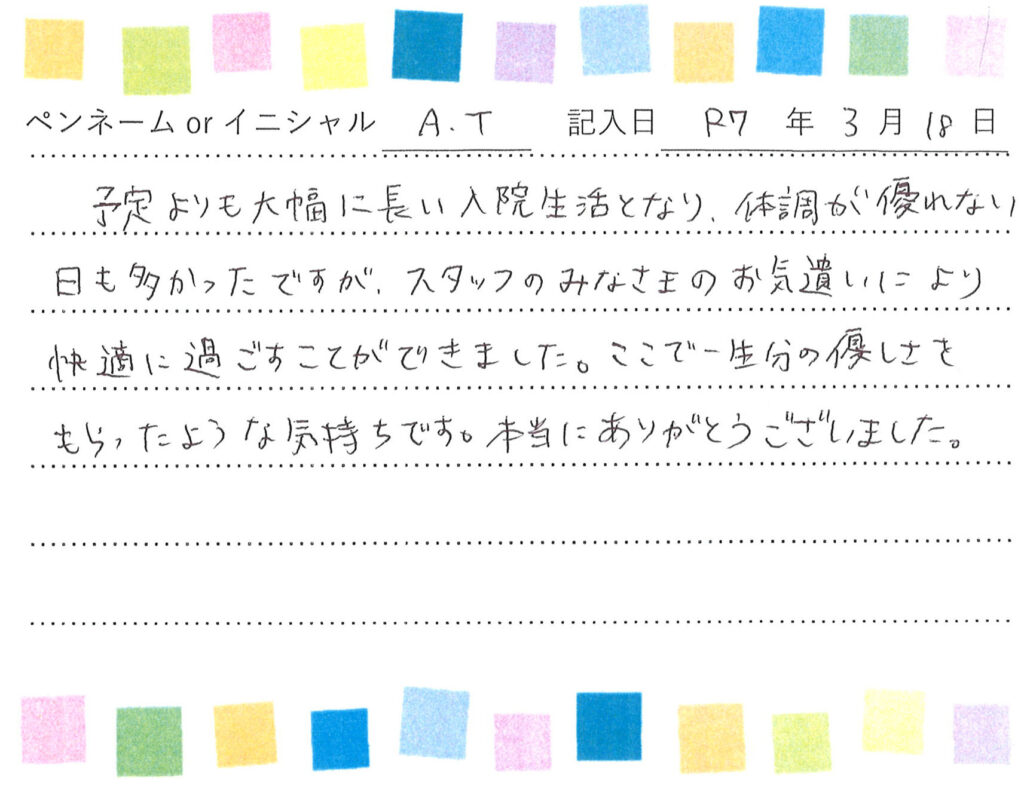 ペンネーム or イニシャル A.T 記入日 R7 年 3 月 18 日
予定よりも大幅に長い入院生活となり、体調が優れない
日も多かったですが、スタッフのみなさまのお気遣いにより
快適に過ごすことができました。ここで一生分の優しさを
もらったような気持ちです。本当にありがとうございました。